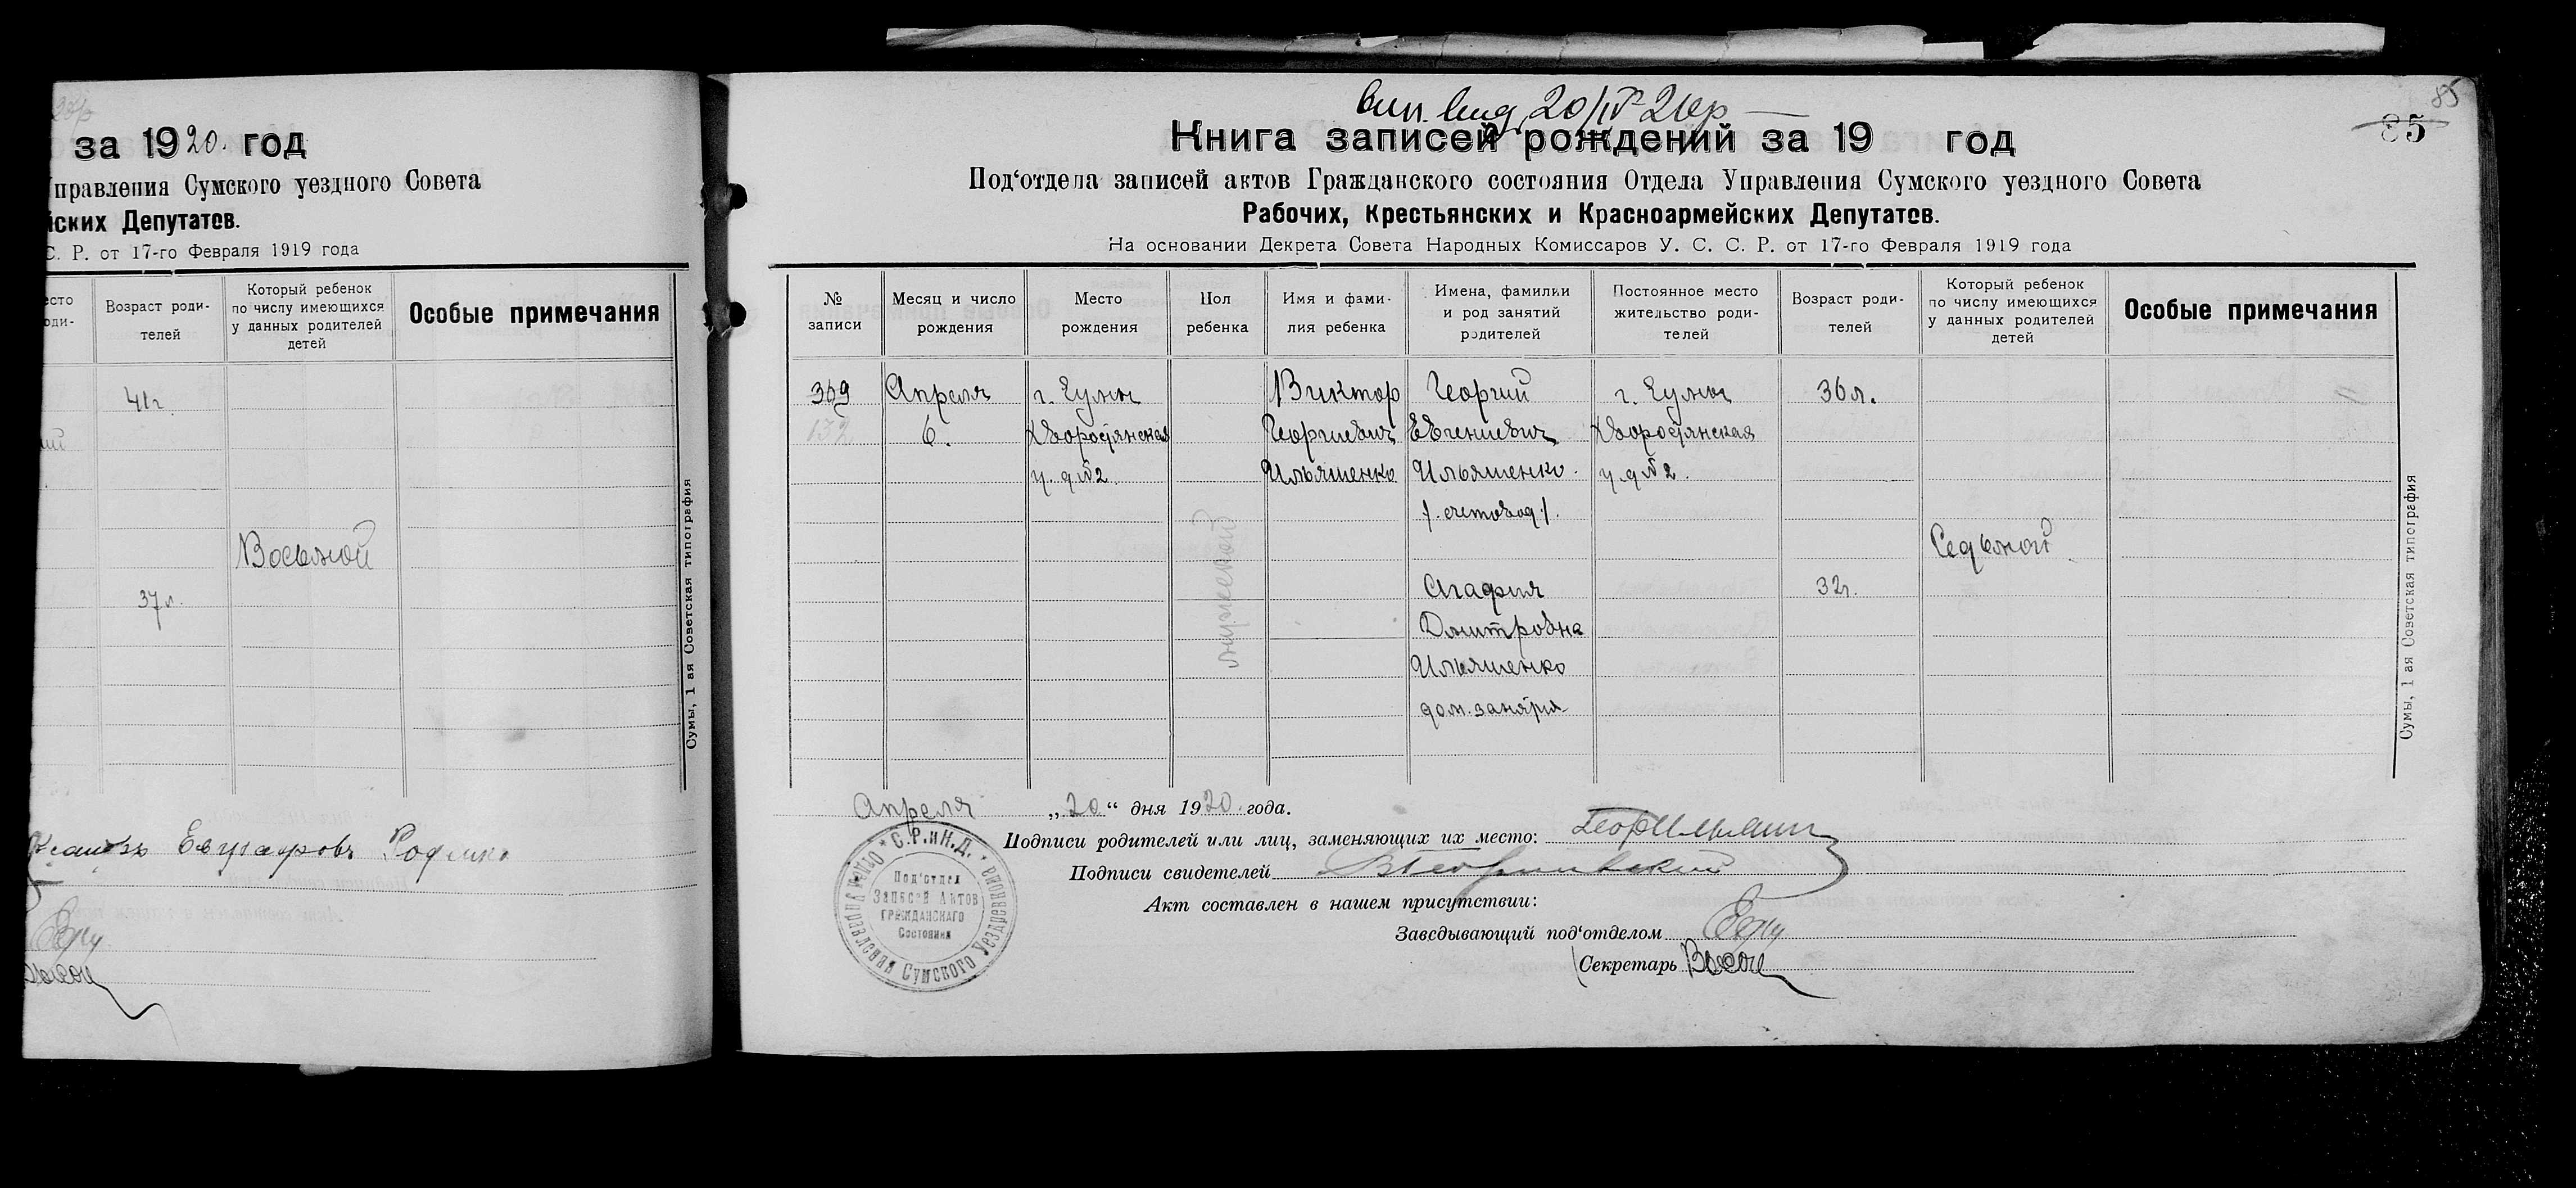 за 1920. год
Управления Сумского уездного Совета
йских Депутатов.
С. Р. от 17-го Февраля 1919 года
Возраст роди-
телей
Который ребенок
по числу имеющихся
у данных родителей
детей
Особые примечания
41г.
Восьмой
37л.
Сумы, 1 ая Советская типография
85
85
20/IV-20р
Книга записей рождений за 19 год
Под‘отдела записей актов Гражданского состояния Отдела Управления Сумского уездного Совета
Рабочих, Крестьянских и Красноармейских Депутатов.
На основании Декрета Совета Народных Комиссаров У. С. С. Р. от 17-го Февраля 1919 года
№
записи
Месяц и число
рождения
Место
рождения
Пол
ребенка
Имя и фами-
лия ребенка
Имена, фамилии
и род занятий
родителей
Постоянное место
жительство роди-
телей
Возраст роди-
телей
Который ребенок
по числу имеющихся
у данных родителей
детей
Особые примечания
369
132
Апреля
6.
г. Сумы
Дворянская
у. д №2.
мужеской
Виктор
Георгиевич
Ильяшенко
Георгий
Евгениевич
Ильяшенко.
/. счетовод./.
Агафия
Дмитровна
Ильяшенко
дом. занятия
г. Сумы
Дворянская
у. д №2.
36л.
32г.
Седьмой
Сумы, 1 ая Советская типография
Апреля „20“ дня 1920. года.
Подписи родителей или лиц, заменяющих их место:
Подписи свидетелей
Акт составлен в нашем присутствии:
Заведывающий под‘отделом
Секретарь
С.Р.и К.Д.
Отдел Управления Сумского Уездревкома
Под‘отдел
Записей Актов
Гражданскаго
Состояния